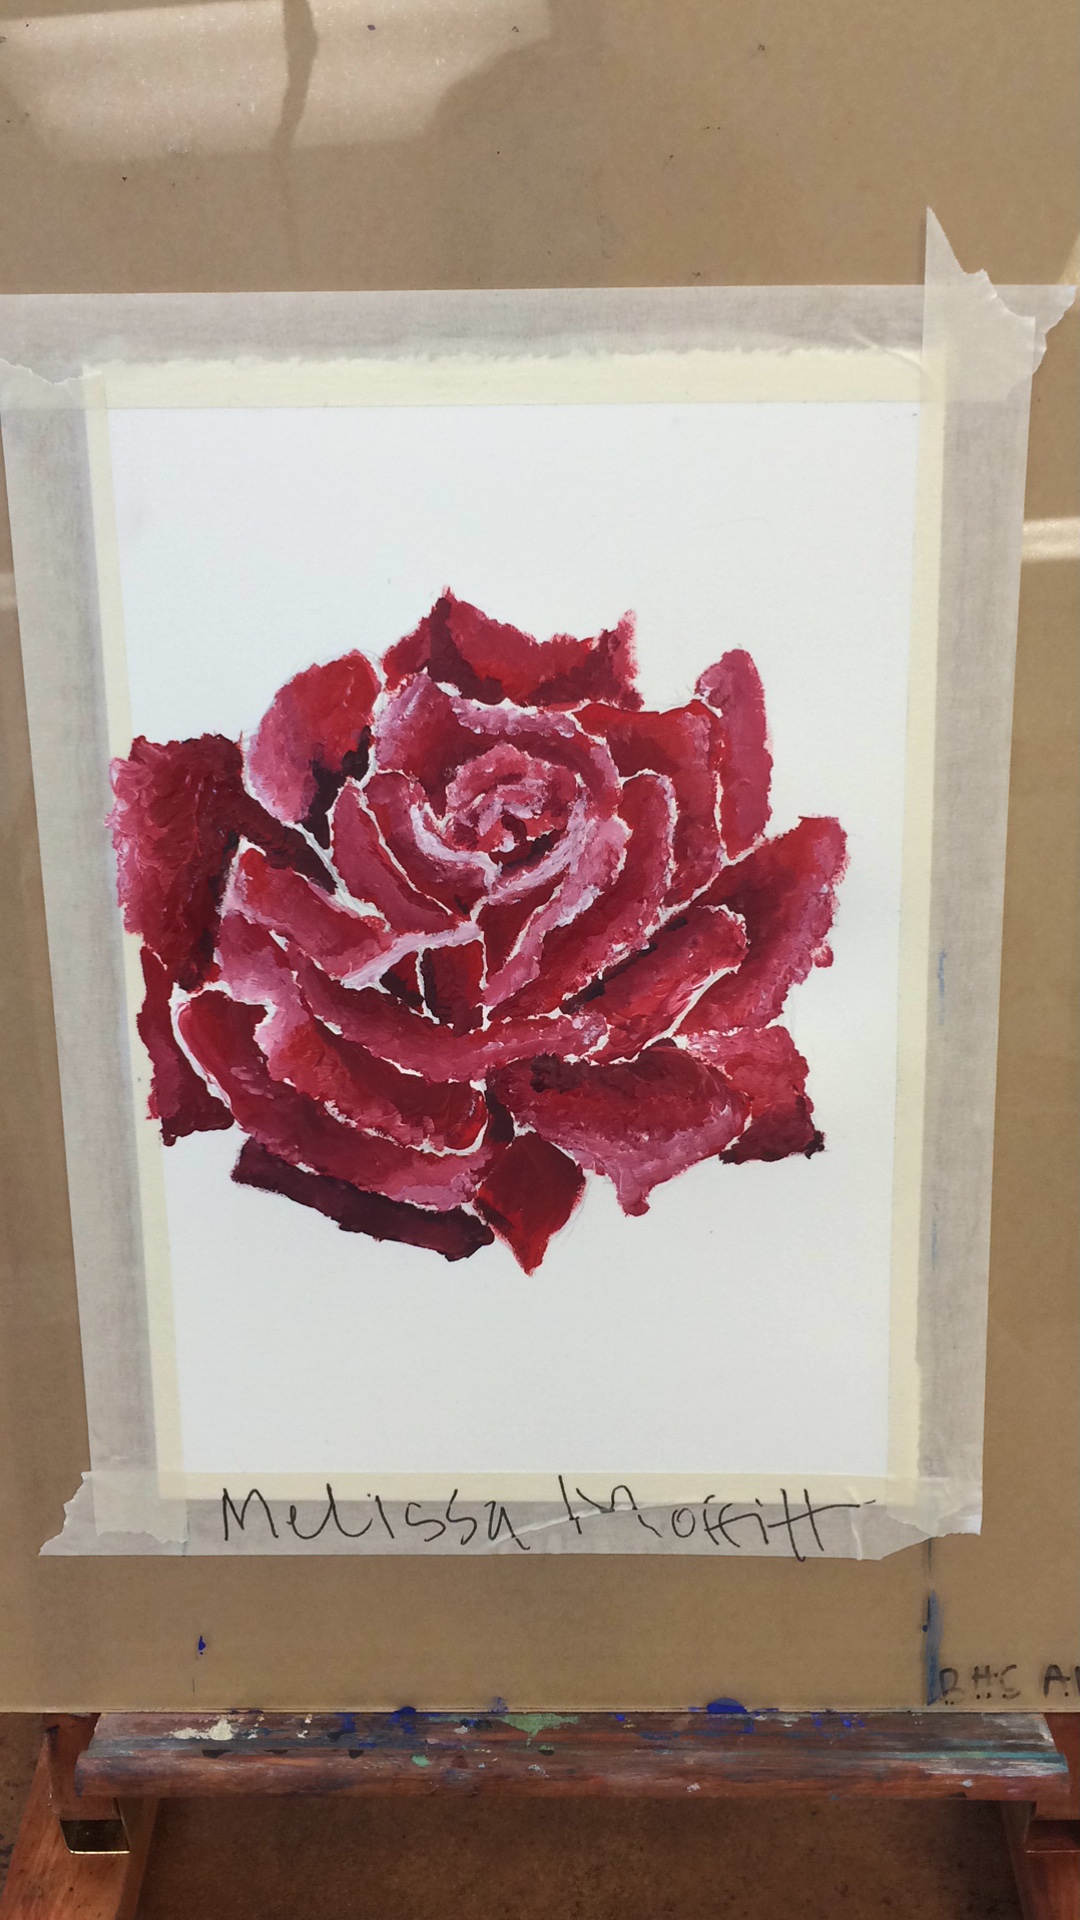 Melissa Moffitt
RHS A